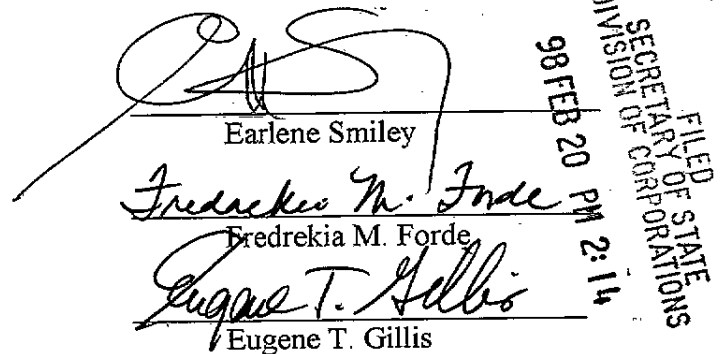 Earlene Smiley
Fredrekia M. Forde
Fredrekia M. Forde
Eugene T. Gillis
Eugene T. Gillis
FILED
SECRETARY OF STATE
DIVISION OF CORPORATIONS
98 FEB 20 PM 2:14